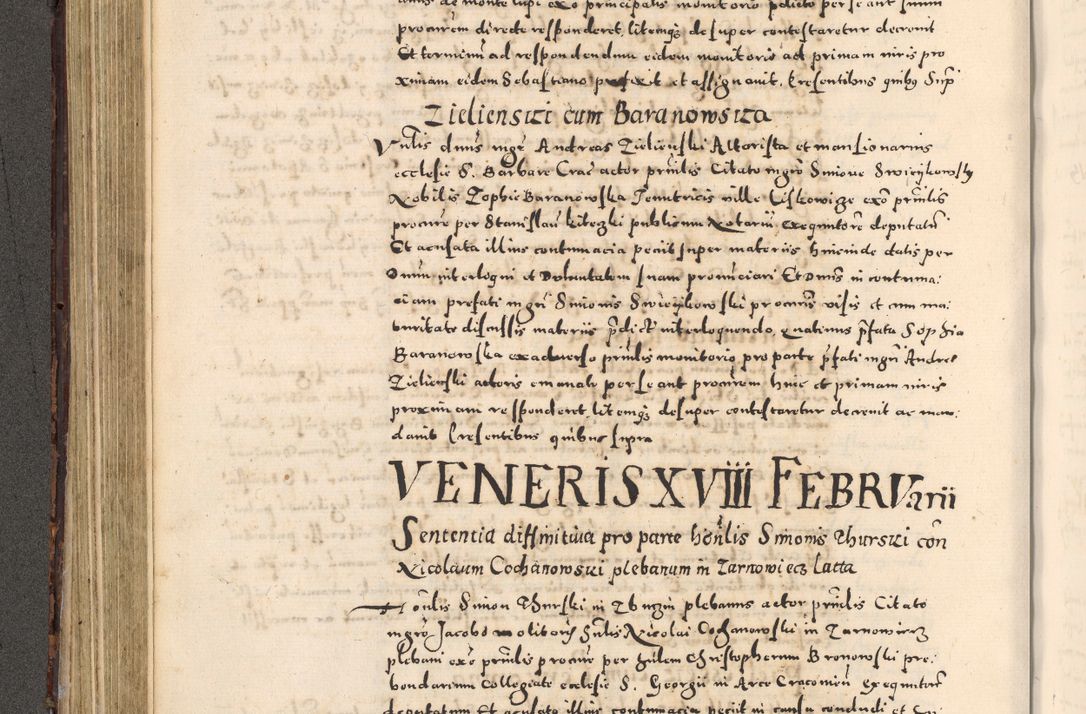 procurem directe responderet, litemq; desuper contestaretur decrevit
Et terminū ad respondendum eidem monitorio ad primam iuris pro
ximam eidem Sebastiano prefexit et assignavit. Presentibus quibg Sup
Zieliensski cum Baranowska
Vnlis dnūs mgr Andreas Zielienski Altarista et mansionarius
ecclesie S. Barbare Crac actor prīnlis Citato mgrō Simone Swieiykowsky
Nobilis Zophie Baranowska Tenutricis ville Liskowicze exō prīnlis
procure per Stanislaū Kiteczki publicum Notariū exequutorē deputatū
Et acusata illius contumacia peciit super materiis hincinde datis per
Dnum interloqui et voluntatem suam pronunciari Et Dnus in contuma:
ciam prefati mgri Simonis Swieiykowski procuris visis et cum ma:
turitate discussis materiis pdictis interloquendo, quatinus pfata Sophia
Baranowska ex adverso prīnlis monitorio, pro parte pfati mgri Andree
Zielienski actoris emanato per se aut procurem hinc et primam iuris
proximam responderet, litemq; desuper contestaretur decrevit ac man:
davit Presentibus quibus supra
VENERIS XVIII FEBRVarii
Sententia diffinitiva pro parte honlis Simonis Thurski con
Nicolaum Cochanowski plebanum in Tarnowiecz latta
Honlis Simon Thurski in plebanus actor prīnlis Citato
mgrō Jacobo molitoris Nicolai Cochanowski in Tarnowiecz
plebani exō prīnlis procure per Christopherum Bronowski pre:
bendarium Collegiate ecclesie S. Georgii in Arce Cracovien exequutorē
deputatum Et acusata illius contumacia peciit in causa concludi et